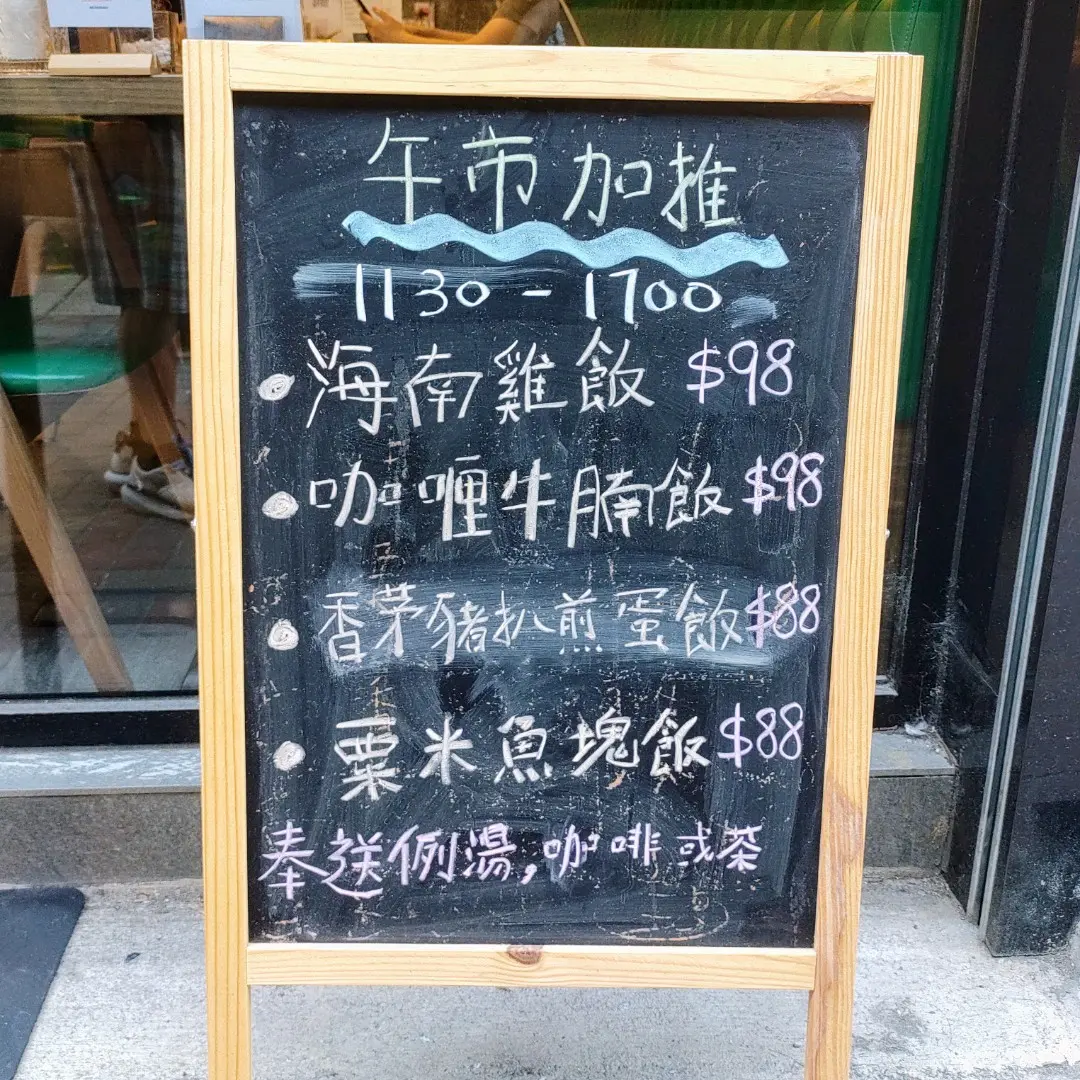 午市加推
1130 - 1700
海南雞飯 $98
咖喱牛腩飯 $98
香茅豬扒煎蛋飯 $88
粟米魚塊飯 $88
奉送例湯,咖啡或茶